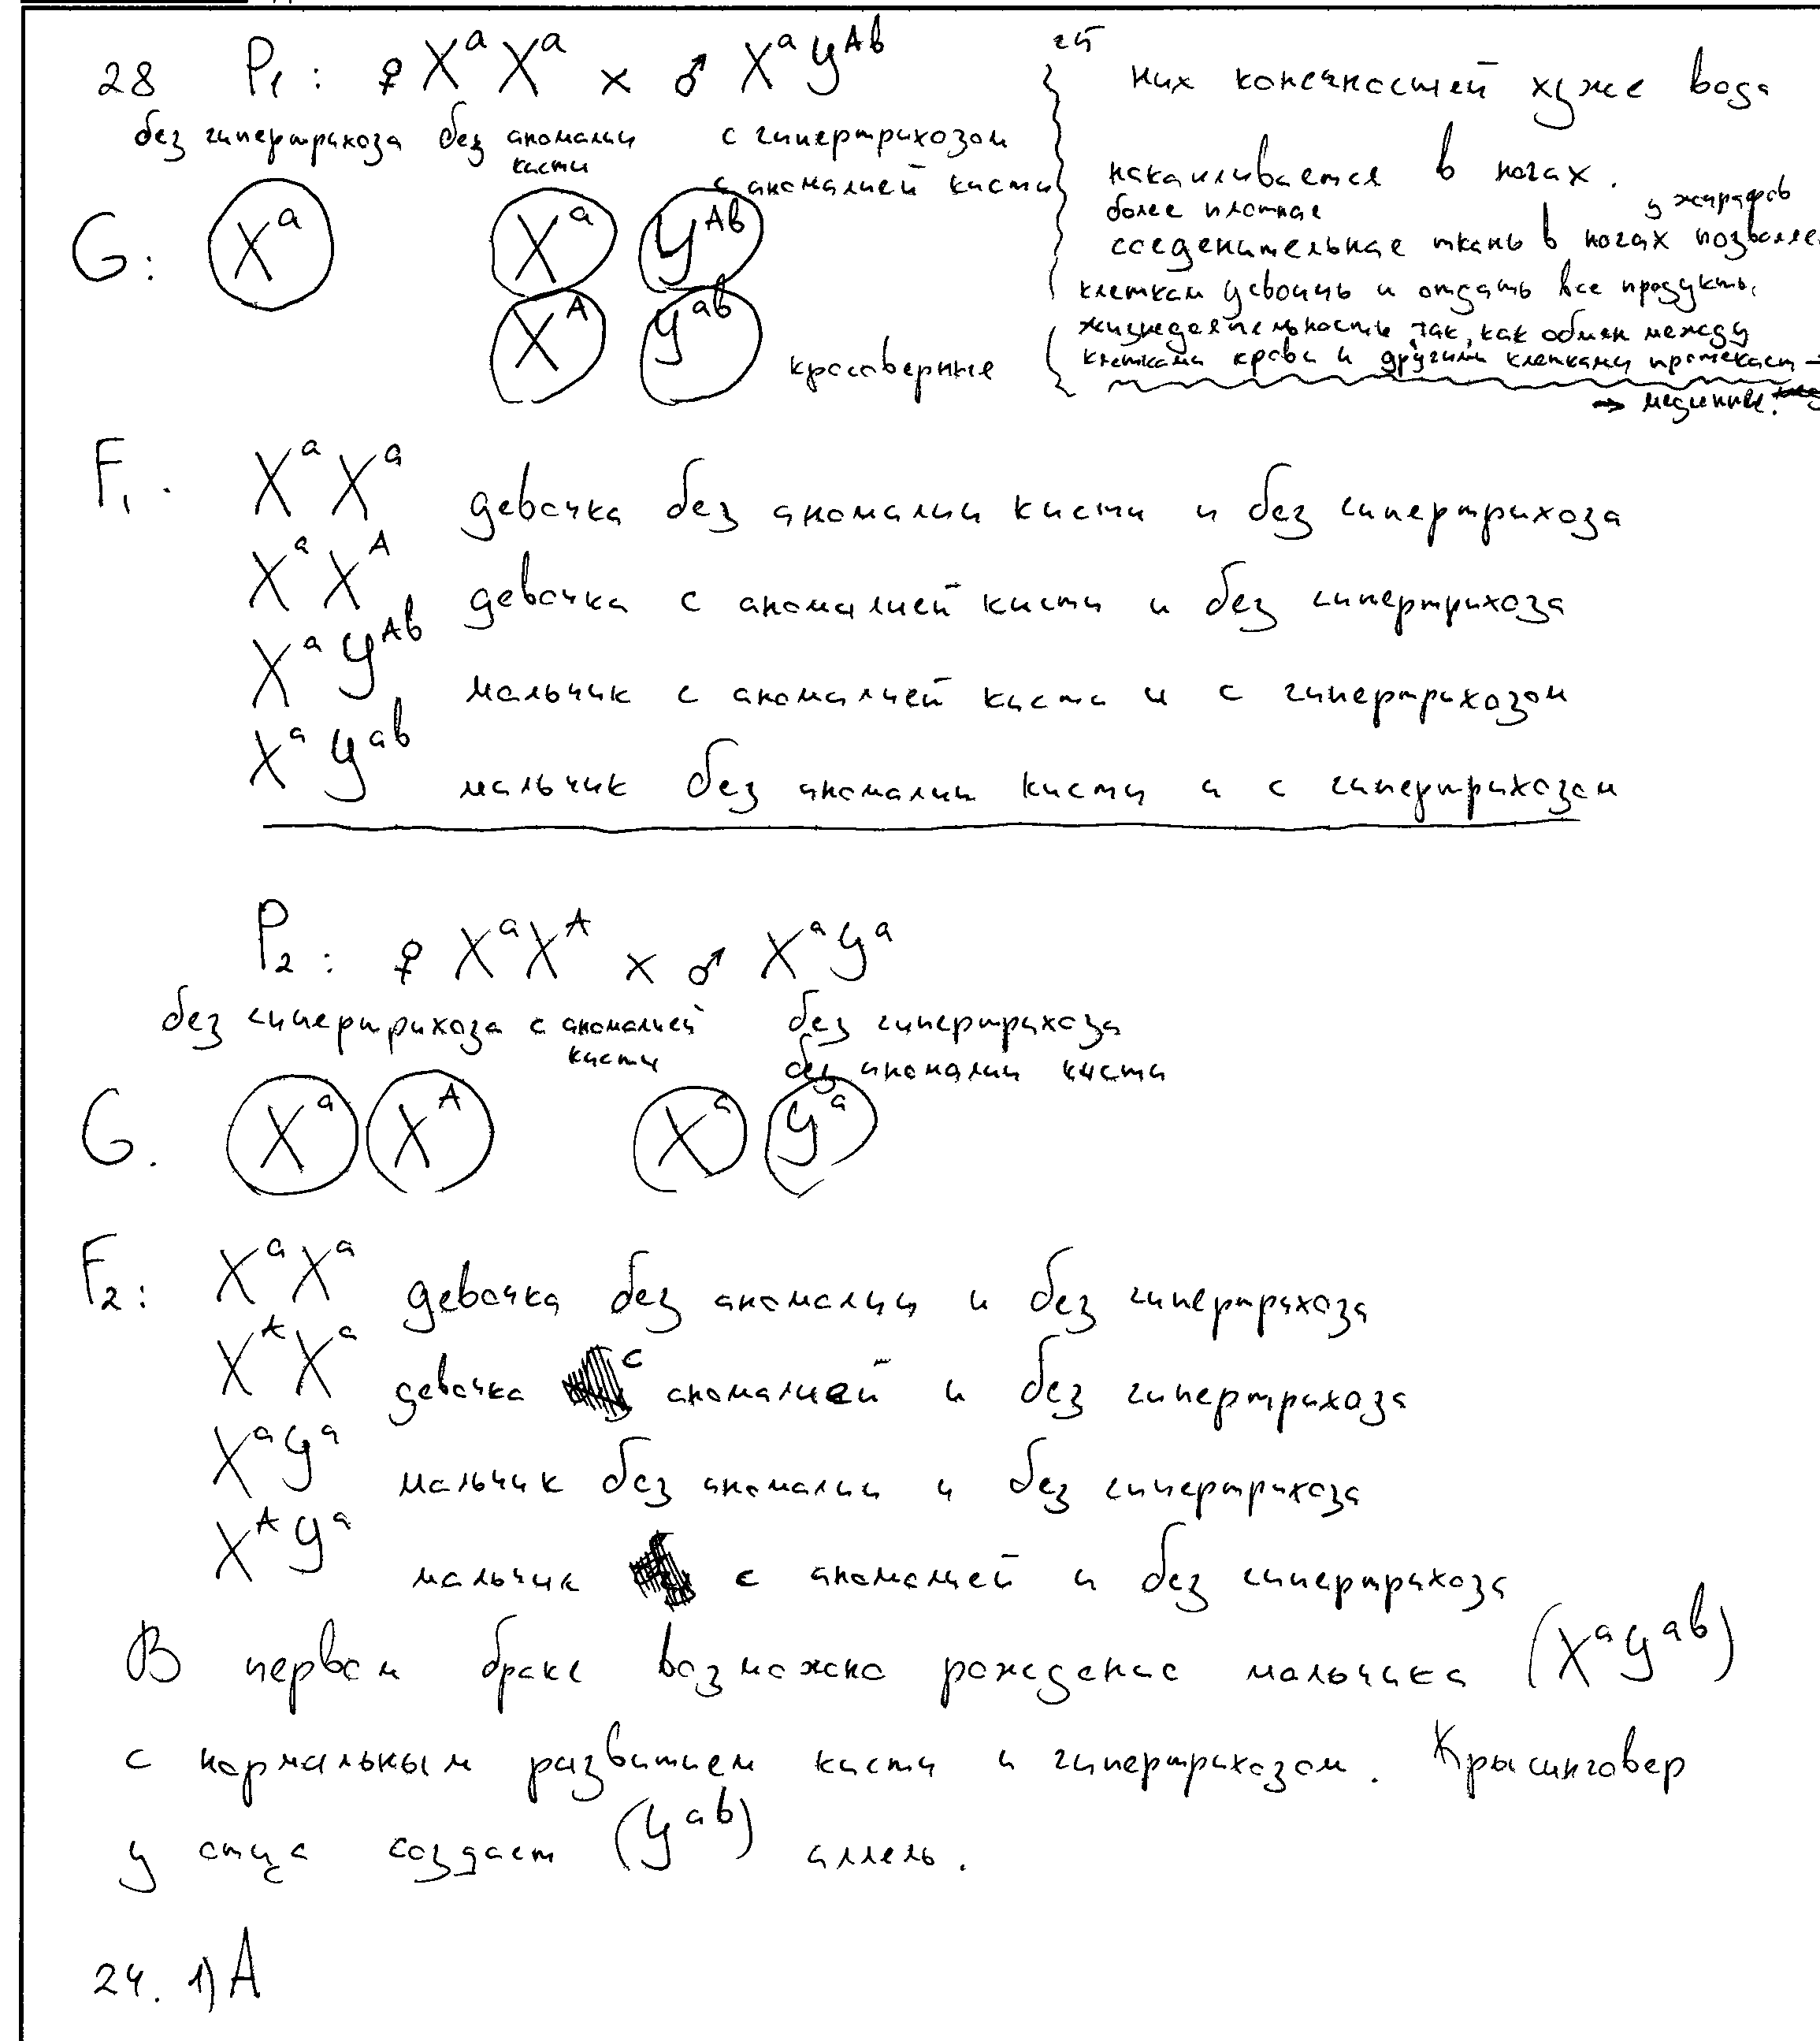 28 P₁ : ♀ XᵃXᵃ × ♂ XᵃYᴬᵇ
без гипертрихоза без аномалии кисти с гипертрихозом с аномалией кисти
G: Xᵃ Xᵃ Yᴬᵇ
Xᴬ Yᵃᵇ кроссоверные
25
них конечностей хуже вода
накапливается в ногах.
более плотная у жирафов
соеденительная ткань в ногах позволяет
клеткам усвоить и отдать все продукты
жизнедеятельности, так, как обмен между
клетками крови и другими клетками протекает →
→ медленнее.
F₁. XᵃXᵃ девочка без аномалии кисти и без гипертрихоза
XᵃXᴬ девочка с аномалией кисти и без гипертрихоза
XᵃYᴬᵇ мальчик с аномалией кисти и с гипертрихозом
XᵃYᵃᵇ мальчик без аномалии кисти и с гипертрихозом
P₂ : ♀ XᵃXᴬ × ♂ XᵃYᵃ
без гипертрихоза с аномалией кисти без гипертрихоза без аномалии кисти
G. Xᵃ Xᴬ Xᵃ Yᵃ
F₂: XᵃXᵃ девочка без аномалии и без гипертрихоза
XᴬXᵃ девочка с аномалией и без гипертрихоза
XᵃYᵃ мальчик без аномалии и без гипертрихоза
XᴬYᵃ мальчик с аномалией и без гипертрихоза
В первом браке возможно рождение мальчика (XᵃYᵃᵇ)
с нормальным развитием кисти и гипертрихозом. Кроссинговер
у отца создает (Yᵃᵇ) аллель.
24. 1) А